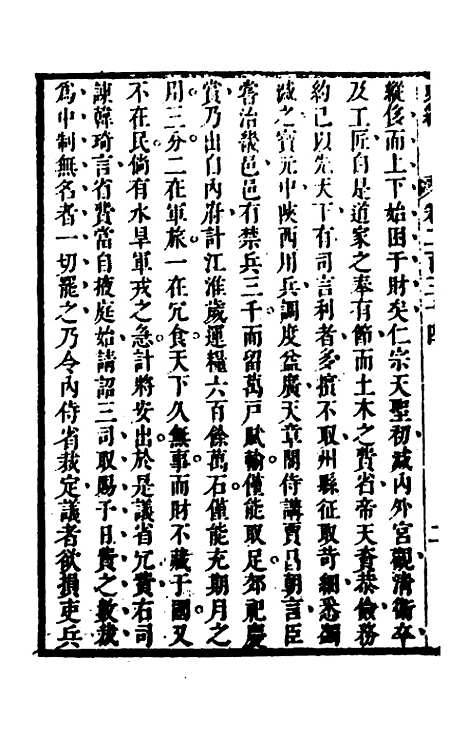 縱侈而上下始困于財矣仁宗天聖初減內外宮觀清衞卒
及工匠自是道家之奉有節而土木之費省帝天資恭儉務
約己以先天下有司言利者多擯不取州縣征取苛細悉蠲
減之寶元中陝西用兵調度益廣天章閣侍講賈昌朝言臣
嘗治畿邑邑有禁兵三千而留萬戸賦輸僅能取足郊祀慶
賞乃出自內府計江淮歲運糧六百餘萬石僅能充期月之
用三分二在軍旅一在冗食天下久無事而財不藏于國又
不在民倘有水旱軍戎之急計將安出於是議省冗費右司
諫韓琦言省費當自掖庭始請詔三司取賜予日費之數裁
爲中制無名者一切罷之乃令內侍省裁定議者欲損吏兵